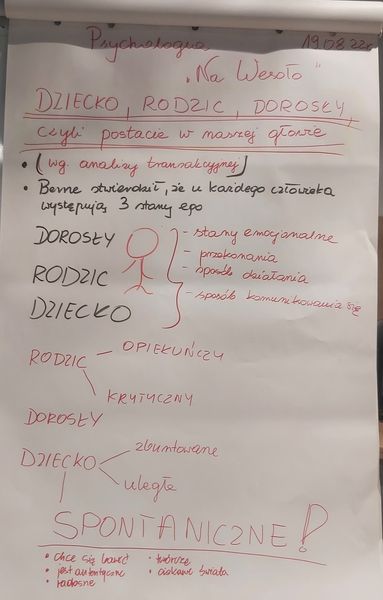 Psychologia 19.08.22r.
„Na Wesoło"
DZIECKO, RODZIC, DOROSŁY,
czyli postacie w naszej głowie
• (wg. analizy transakcyjnej)
• Berne stwierdził, że u każdego człowieka
występują 3 stany ego
DOROSŁY
RODZIC
DZIECKO
- stany emocjonalne
- przekonania
- sposób działania
- sposób komunikowania się
RODZIC
OPIEKUŃCZY
KRYTYCZNY
DOROSŁY
DZIECKO
zbuntowane
uległe
SPONTANICZNE!
• chce się bawić
• jest autentyczne
• radosne
• twórcze
• ciekawe świata